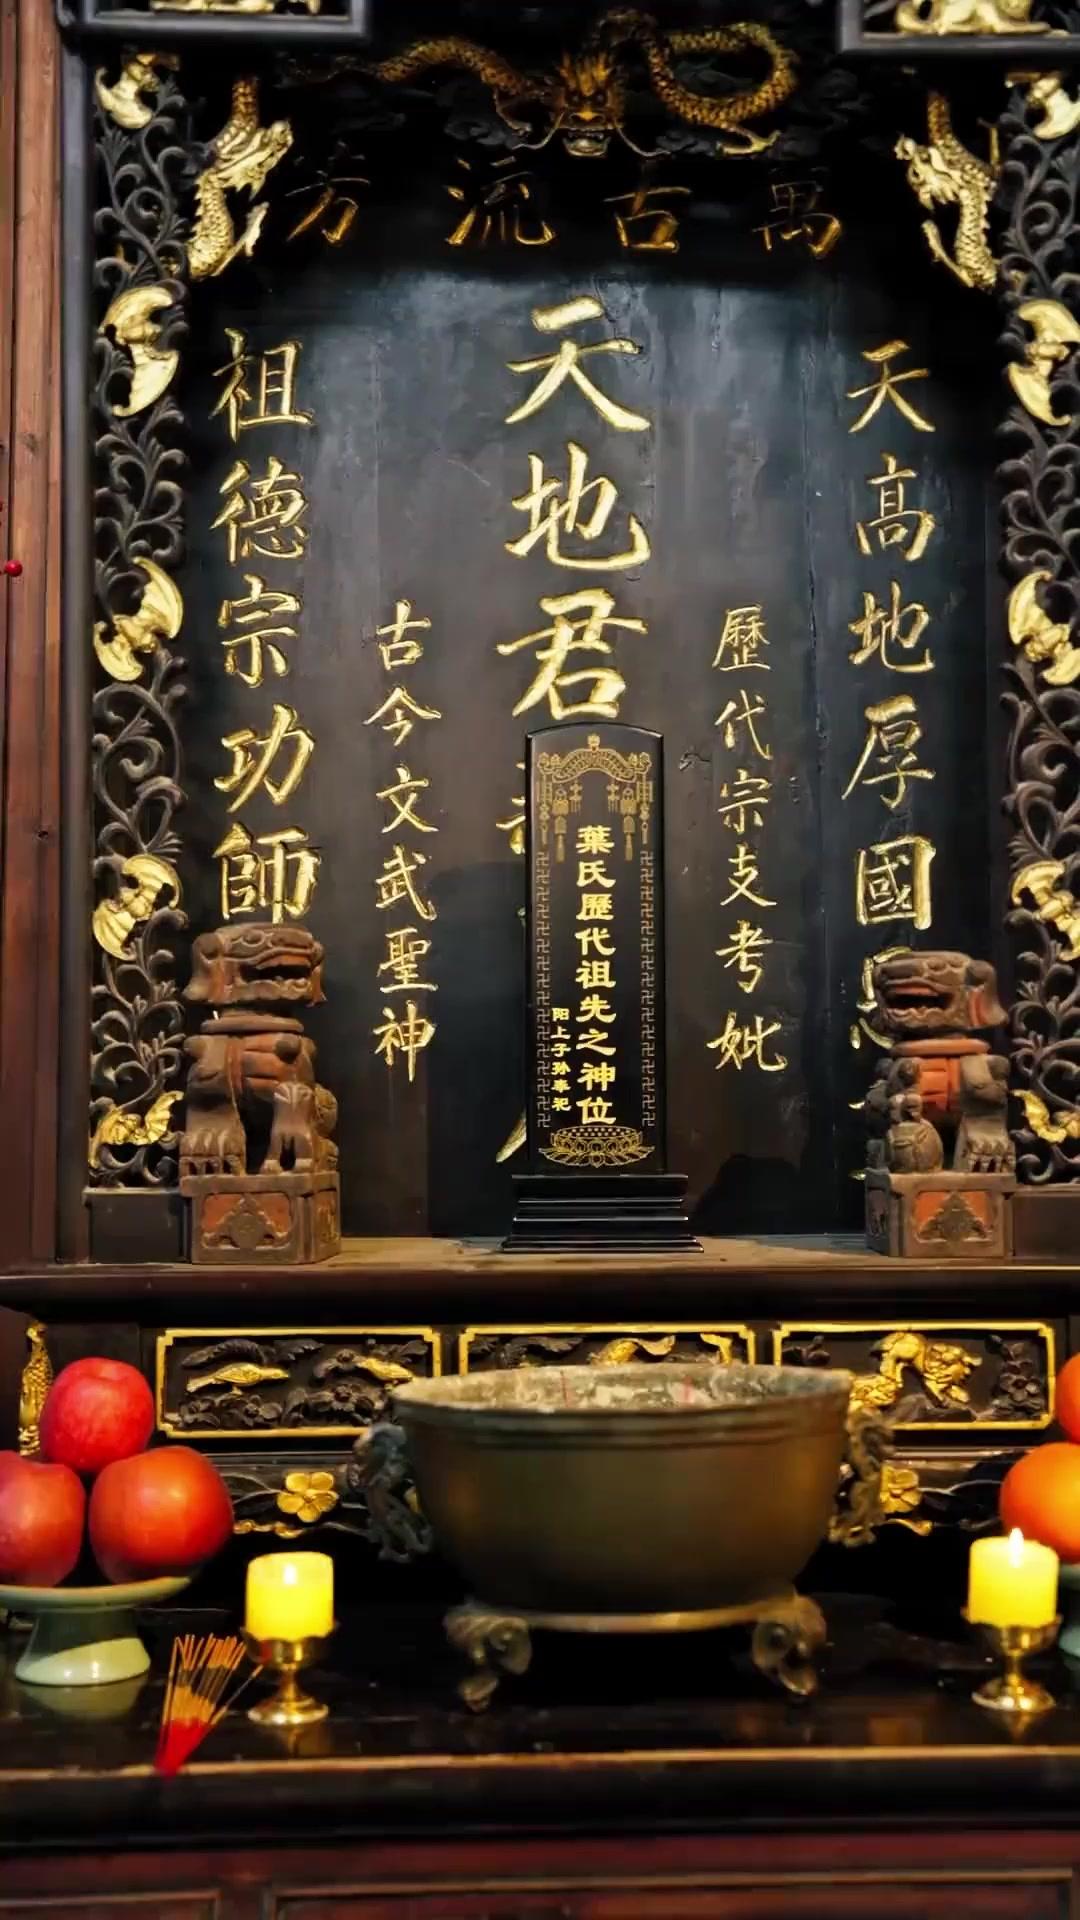 萬古流方
天高地厚國
歷代宗支考妣
天地君
葉氏歷代祖先之神位
阳上子孙奉祀
古今文武聖神
祖德宗功師